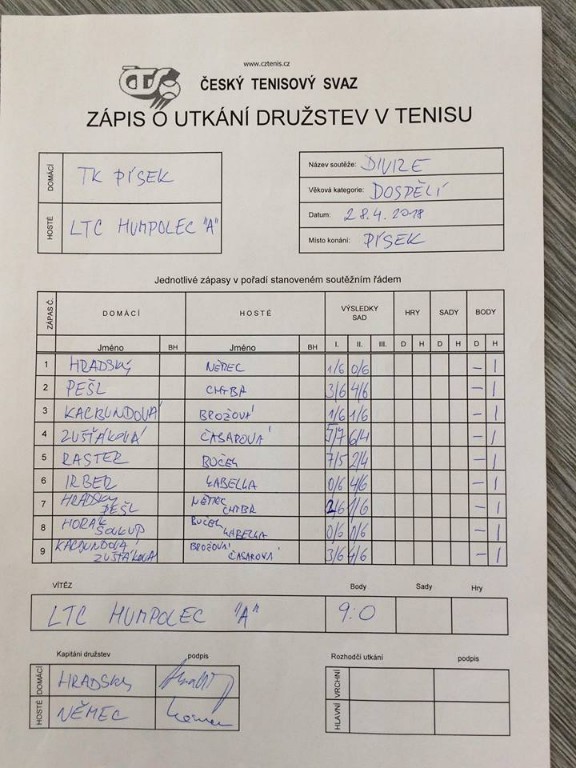 www.cztenis.cz
ČTS ČESKÝ TENISOVÝ SVAZ
ZÁPIS O UTKÁNÍ DRUŽSTEV V TENISU
DOMÁCÍ TK PÍSEK
HOSTÉ LTC HUMPOLEC "A"
Název soutěže: DIVIZE
Věková kategorie: DOSPĚLÍ
Datum: 28.4.2018
Místo konání: PÍSEK
Jednotlivé zápasy v pořadí stanoveném soutěžním řádem
ZÁPAS Č. DOMÁCÍ HOSTÉ VÝSLEDKY SAD HRY SADY BODY
Jméno BH Jméno BH I. II. III. D H D H D H
1 HRADSKÝ NĚMEC 1/6 0/6 – 1
2 PEŠL CHYBA 3/6 4/6 – 1
3 KACBUNDOVÁ BROŽOVÁ 1/6 1/6 – 1
4 ZUŠŤÁKOVÁ ČASAROVÁ 5/7 6/4 – 1
5 RASTER BUČEK 7/5 2/4 – 1
6 IRBER 0/6 4/6 – 1
7 HRADSKÝ PEŠL NĚMEC CHYBA 2/6 1/6 – 1
8 HORÁK SOUKUP BUČEK 0/6 0/6 – 1
9 KACBUNDOVÁ ZUŠŤÁKOVÁ BROŽOVÁ ČASAROVÁ 3/6 4/6 – 1
VÍTĚZ Body Sady Hry
LTC HUMPOLEC "A" 9:0
Kapitáni družstev podpis
DOMÁCÍ HRADSKÝ
HOSTÉ NĚMEC
Rozhodčí utkání podpis
VRCHNÍ
HLAVNÍ